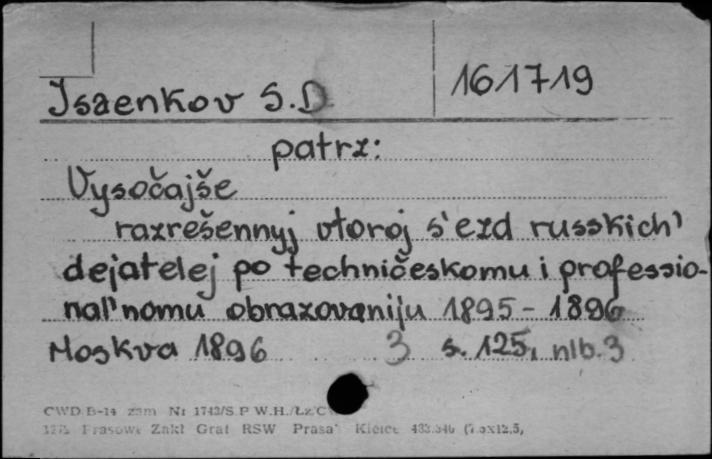 Isaenkov S.D
161719
patrz:
Vysočajše
razrešennyj vtoroj s'ezd russkich'
dejatelej po techničeskomu i professio-
nal'nomu obrazovaniju 1895-1896
Moskva 1896 3 s. 125, nlb. 3
CWD B-14 zam Nr 1742/S P W.H./Łz C
Prasowe Zakł Graf RSW Prasa" Kielce